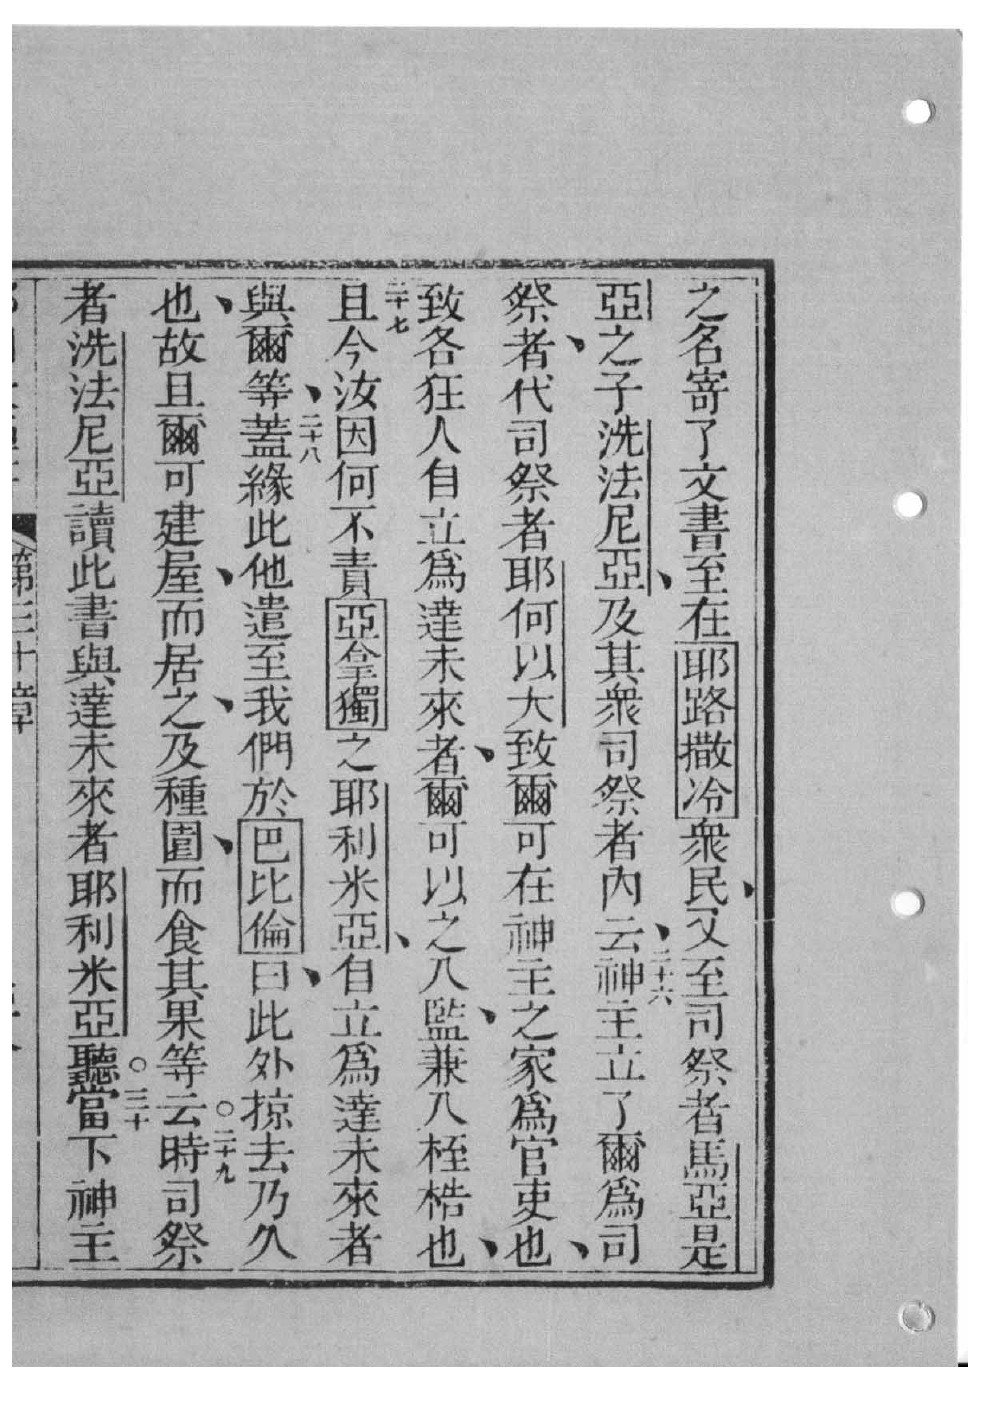 之名寄了文書至在耶路撒冷衆民又至司祭者馬亞是
亞之子洗法尼亞及其衆司祭者內云二十六神主立了爾為司
祭者代司祭者耶何以大致爾可在神主之家為官吏也
致各狂人自立為達未來者爾可以之入監兼入桎梏也
二十七且今汝因何不責亞拿獨之耶利米亞自立為達未來者
與爾等二十八蓋緣此他遣至我們於巴比倫曰此外掠去乃久
也故且爾可建屋而居之及種園而食其果等云○二十九時司祭
者洗法尼亞讀此書與達未來者耶利米亞聽○三十當下神主
第三十章